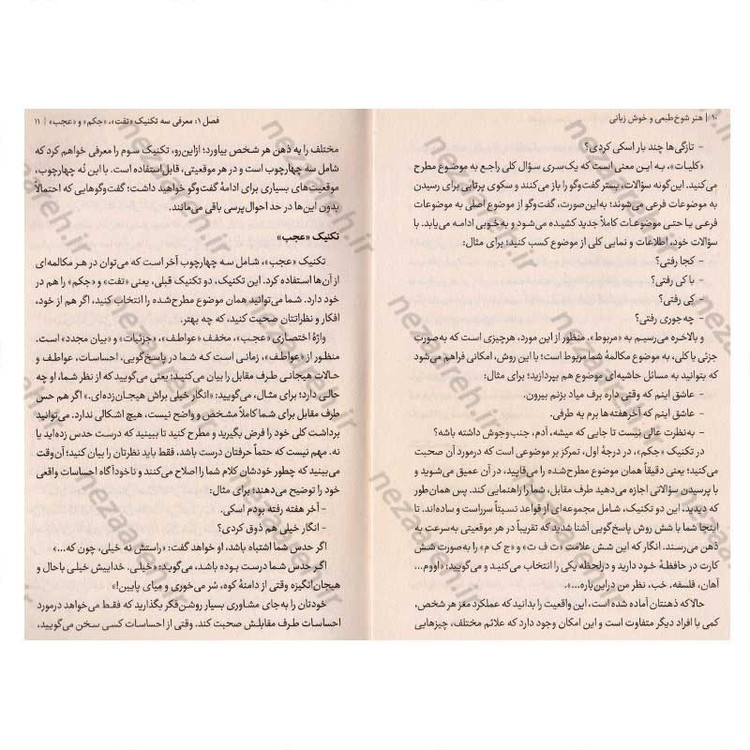 ۱۰ | هنر شوخ‌طبعی و خوش زبانی
- تازگی‌ها چند بار اسکی کردی؟
«کلیات»، بـه ایـن معنی است که یک‌سری سؤال کلی راجـع به موضوع مطرح
می‌کنید. این‌گونه سؤالات، بستر گفت‌وگو را باز می‌کنند و سکوی پرتابی برای رسیدن
به موضوعات فرعی می‌شوند؛ به‌این‌صورت، گفت‌وگو از موضوع اصلی به موضوعات
فرعی یـا حتـی موضوعات کاملاً جدید کشیـده می‌شـود و به‌خوبی ادامه می‌یابد. با
سؤالات خود، اطلاعات و نمایی کلی از موضوع کسب کنید؛ برای مثال:
- کجا رفتی؟
- با کی رفتی؟
- کِی رفتی؟
- چه‌جوری رفتی؟
و بالاخـره می‌رسیـم بـه «مربـوط». منظـور از ایـن مورد، هرچیزی است کـه به‌صورت
جزئی یا کلی، به موضوع مکالمهٔ شما مربوط است؛ با این روش، امکانی فراهم می‌شود
که بتوانید به مسائل حاشیه‌ای موضوع هم بپردازید؛ برای مثال:
- عاشق اینم که وقتی داره برف میاد بزنم بیرون.
- عاشق اینم که آخر هفته‌ها برم یه طرفی.
- به‌نظرت عالی نیست تا جایی که میشه، آدم، جنب‌وجوش داشته باشه؟
در تکنیک «جکم»، در درجهٔ اول، تمرکز بر موضوعی است که درمورد آن صحبت
می‌کنید؛ یعنی دقیقاً همان موضوع مطرح شده را می‌قاپید، در آن عمیق می‌شوید و
با پرسیدن سؤالاتی اجازه می‌دهید طرف مقابل، شما را راهنمایی کند. پس همان‌طور
که دیدید، این دو تکنیک، شامل مجموعه‌ای از قواعد نسبتاً سرراست و ساده‌اند. تا
اینجا شما با شش روش پاسخ‌گویی آشنا شدید که تقریباً در هر موقعیتی به‌سرعت به
ذهن می‌رسند. انگار که این شش علامت «ت ف ت» و «ج ک م» را به‌صورت شش
کارت در حافظهٔ خـود دارید و درلحظه یکی را انتخاب می‌کنید و می‌گوییـد: «اووم...
آهان، فلسفه. خب، نظر من دراین‌باره...».
حالا که ذهنتان آماده شده است، این واقعیت را بدانید که عملکرد مغز هر شخص،
کمی با افراد دیگر متفاوت است و این امکان وجود دارد که علائم مختلف، چیزهایی
فصل ۱: معرفی سه تکنیک «تفت»، «جکم» و «عجب» | ۱۱
مختلف را به ذهن هر شخص بیاورد؛ ازاین‌رو، تکنیک سوم را معرفی خواهم کرد که
شامل سه چهارچوب است و در هر موقعیتی، قابل استفاده است. با این نُه چهارچوب،
موقعیت‌های بسیاری برای ادامهٔ گفت‌وگو خواهید داشت؛ گفت‌وگوهایی که احتمالاً
بدون این‌ها در حد احوال‌پرسی باقی می‌مانند.
تکنیک «عجب»
تکنیک «عجب»، شامل سه چهارچوب آخر است که می‌توان در هـر مکالمه‌ای
از آن‌ها استفاده کرد. این تکنیک، دو تکنیک قبلی، یعنی «تفت» و «جکم» را هم در
خود دارد. شما می‌توانید همان موضوع مطرح‌شده را انتخاب کنید، اگر هم از خود،
افکار و نظراتتان صحبت کنید، که چه بهتر.
واژهٔ اختصاری «عجب»، مخفف «عواطف»، «جزئیات» و «بیان مجدد» است.
منظـور از «عواطف»، زمانی است کـه شمـا در پاسخ‌گویی، احساسات، عواطف و
حالات هیجانی طرف مقابل را بیان می‌کنید؛ یعنی می‌گویید که از نظر شما، او چه
حالی دارد؛ برای مثال، می‌گویید: «انگار خیلی براش هیجان‌زده‌ای.» اگر هم حس
طرف مقابل برای شما کاملاً مشخص و واضح نیست، هیچ اشکالی ندارد. می‌توانید
برداشت کلی خود را فرض بگیرید و مطرح کنید تا ببینید که درست حدس زده‌اید یا
نه. مهم نیست که حتماً حرفتان درست باشد، فقط باید نظرتان را بیان کنید؛ آن‌وقت
می‌بینید که چطور خودشان کلام شما را اصلاح می‌کنند و ناخودآگاه احساسات واقعی
خود را توضیح می‌دهند؛ برای مثال:
- آخر هفته رفته بودم اسکی.
- انگار خیلی هم ذوق کردی؟
اگر حدس شما اشتباه باشد، او خواهد گفت: «راستش نه خیلی، چون که...»
اگر حـدس شمـا درست بـوده باشـد، می‌گویـد: «خیلی. خداییش خیلی باحال و
هیجان‌انگیزه وقتی از دامنهٔ کوه، سُر می‌خوری و میای پایین!»
خودتان را به جای مشاوری بسیار روشن‌فکر بگذارید که فقط می‌خواهد درمورد
احساسات طرف مقابلش صحبت کند. وقتی از احساسات کسی سخن می‌گویید،
nezaareh.ir